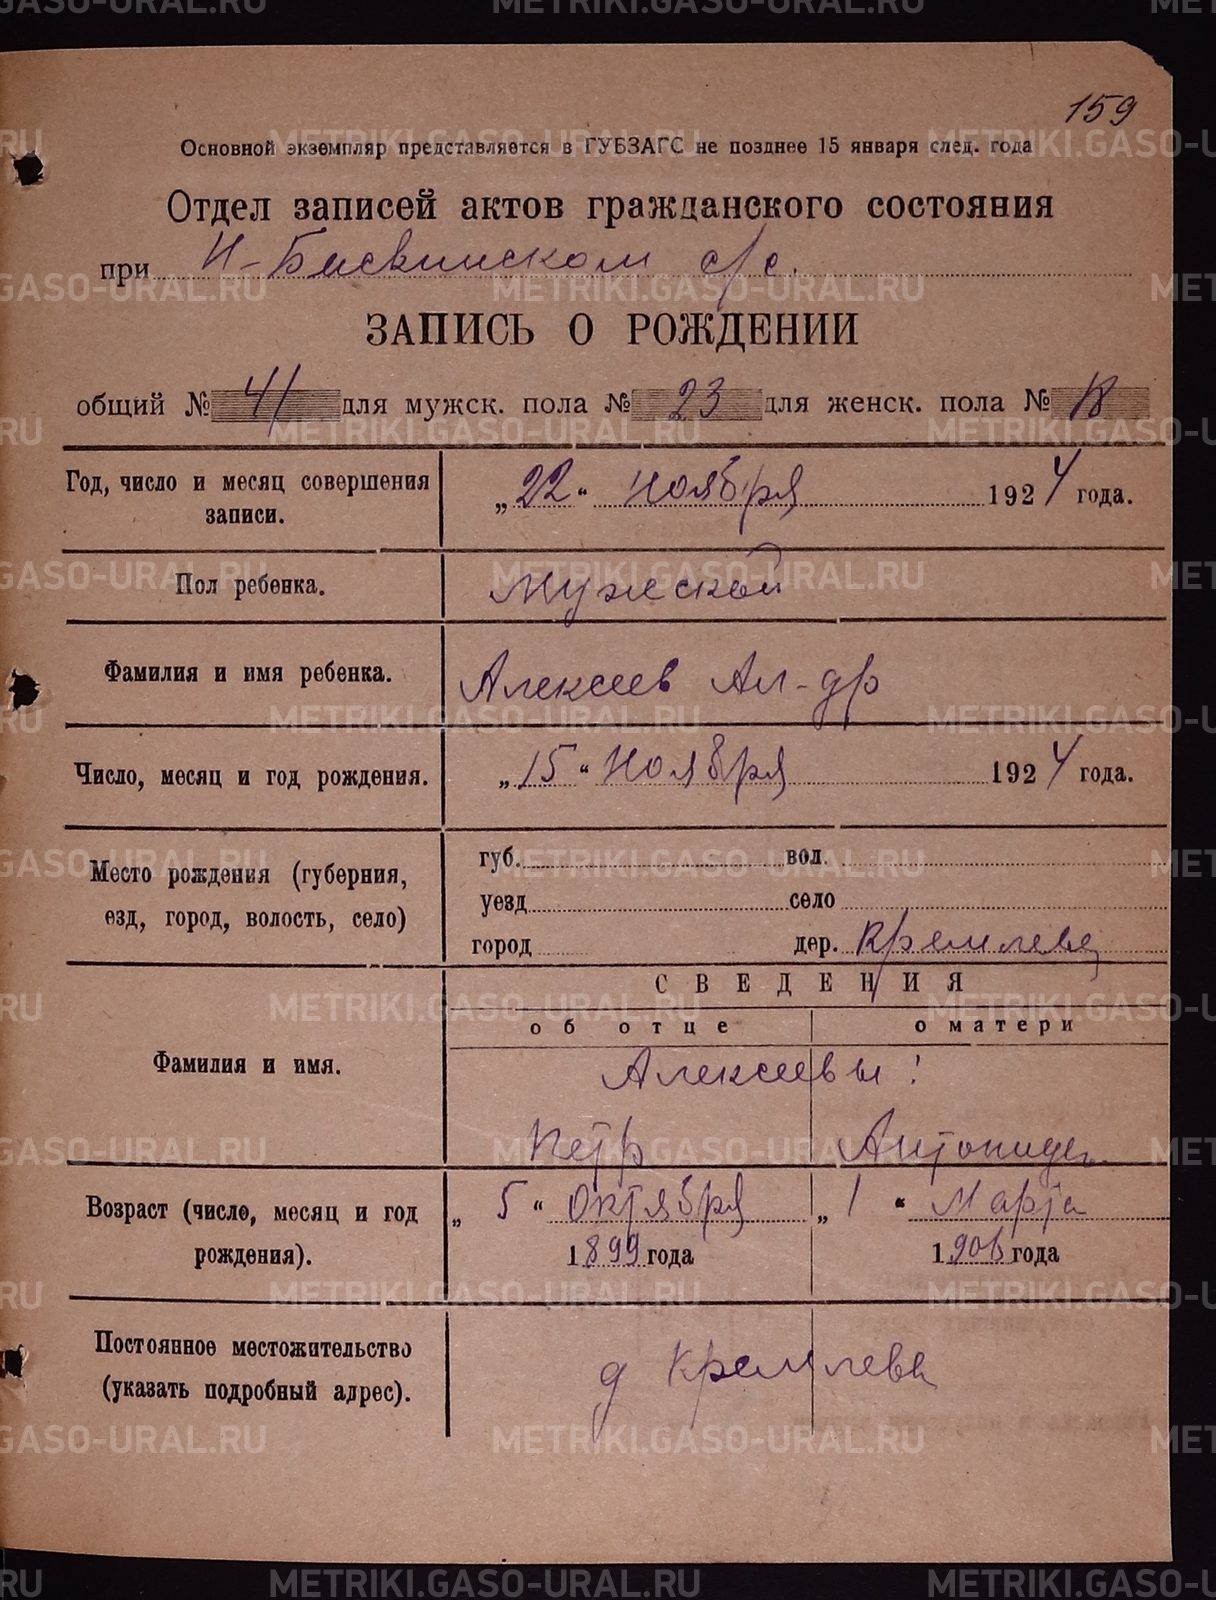 159
Основной экземпляр представляется в ГУБЗАГС не позднее 15 января след. года
Отдел записей актов гражданского состояния
при Н-Бисвинском с/с.
ЗАПИСЬ О РОЖДЕНИИ
общий № 41 для мужск. пола № 23 для женск. пола № 18
Год, число и месяц совершения записи. „22“ ноября 1924 года.
Пол ребенка. Мужской
Фамилия и имя ребенка. Алексеев Ал-др
Число, месяц и год рождения. „15“ Ноября 1924 года.
Место рождения (губерния, езд, город, волость, село)
губ. вол.
уезд село
город дер. Кремлева
СВЕДЕНИЯ
об отце о матери
Фамилия и имя. Алексеевы:
Петр Антонида
Возраст (число, месяц и год рождения). „5“ Октября „1“ Марта
1899 года 1906 года
Постоянное местожительство (указать подробный адрес). д Кремлева
METRIKI.GASO-URAL.RU